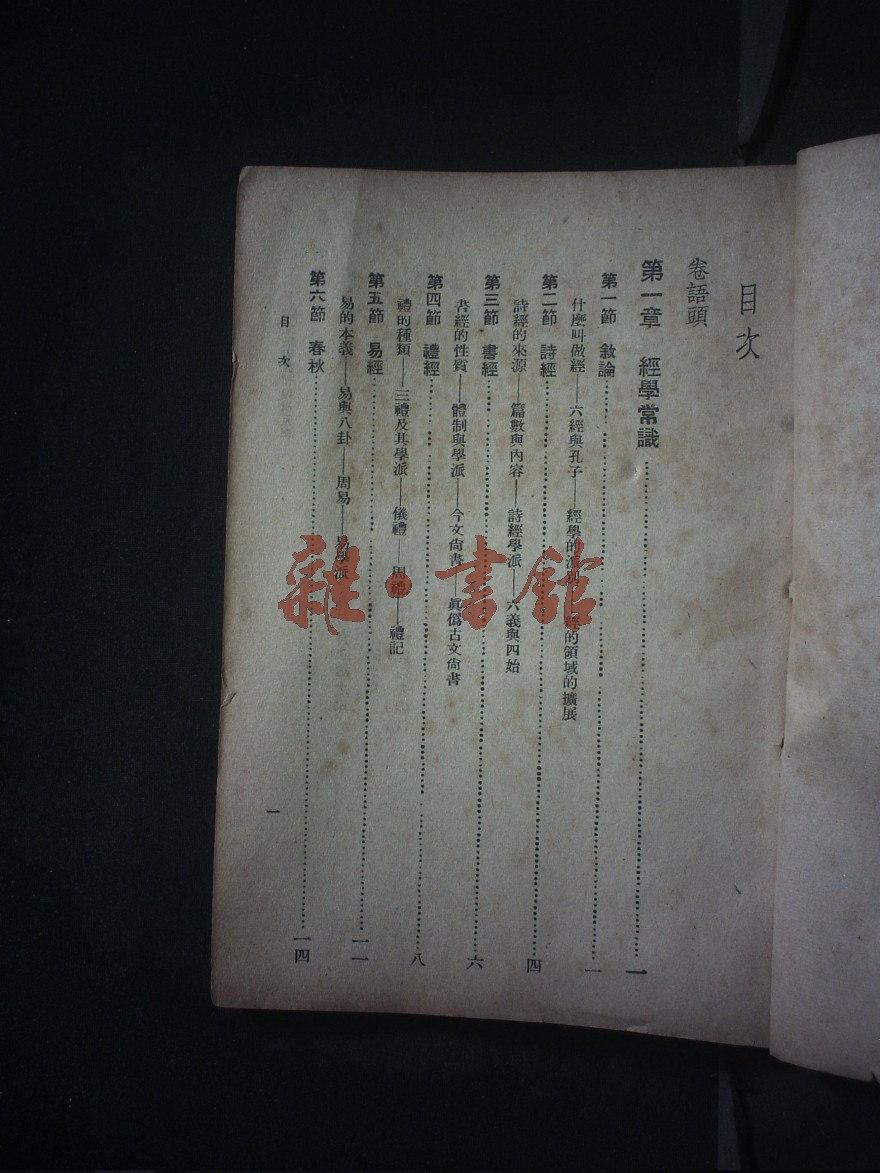 目次
卷語頭
第一章 經學常識……一
第一節 敘論……一
什麼叫做經——六經與孔子——經學的派別——經的領域的擴展
第二節 詩經……四
詩經的來源——篇數與內容——詩經學派——六義與四始
第三節 書經……六
書經的性質——體制與學派——今文尙書——眞僞古文尙書
第四節 禮經……八
禮的種類——三禮及其學派——儀禮——周禮——禮記
第五節 易經……一一
易的本義——易與八卦——周易——易學派
第六節 春秋……一四
目次
一
雜·書館